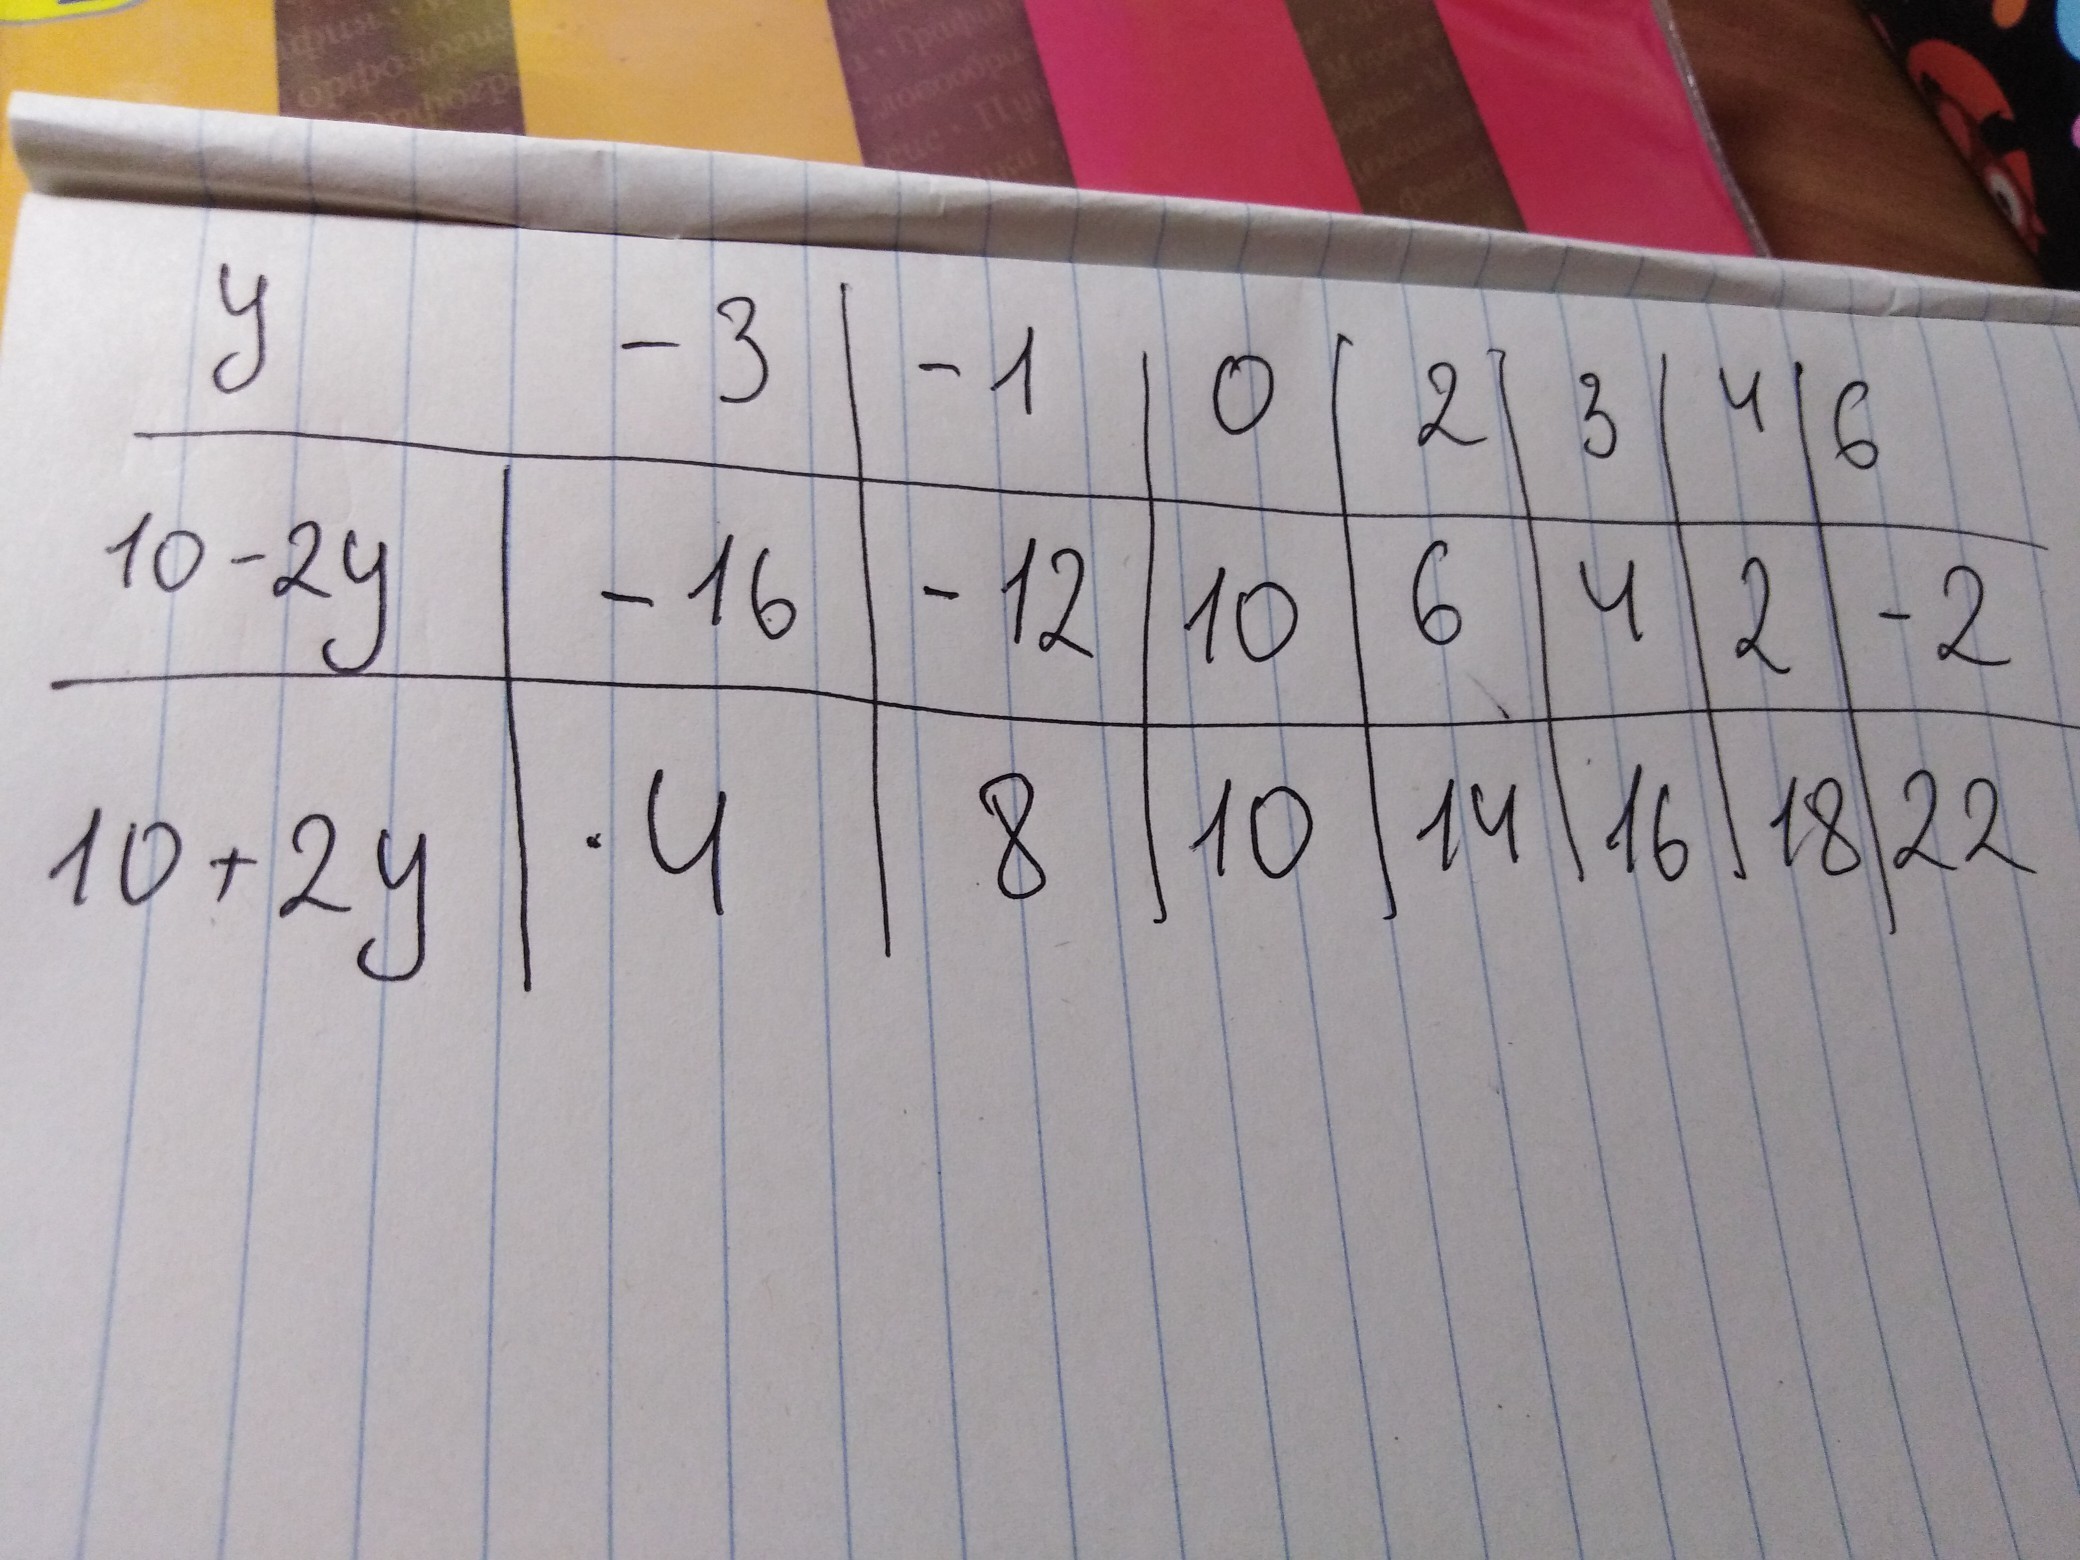 y -3 -1 0 2 3 4 6
10-2y -16 -12 10 6 4 2 -2
10+2y .4 8 10 14 16 18 22